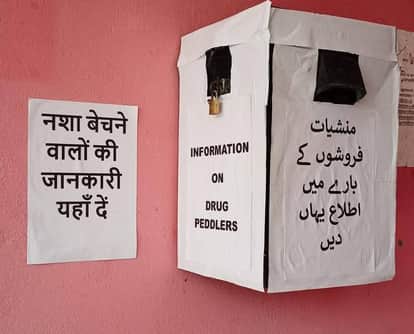 नशा बेचने
वालों की
जानकारी
यहाँ दें
INFORMATION
ON
DRUG
PEDDLERS
منشیات
فروشوں کے
بارے میں
اطلاع یہاں
دیں